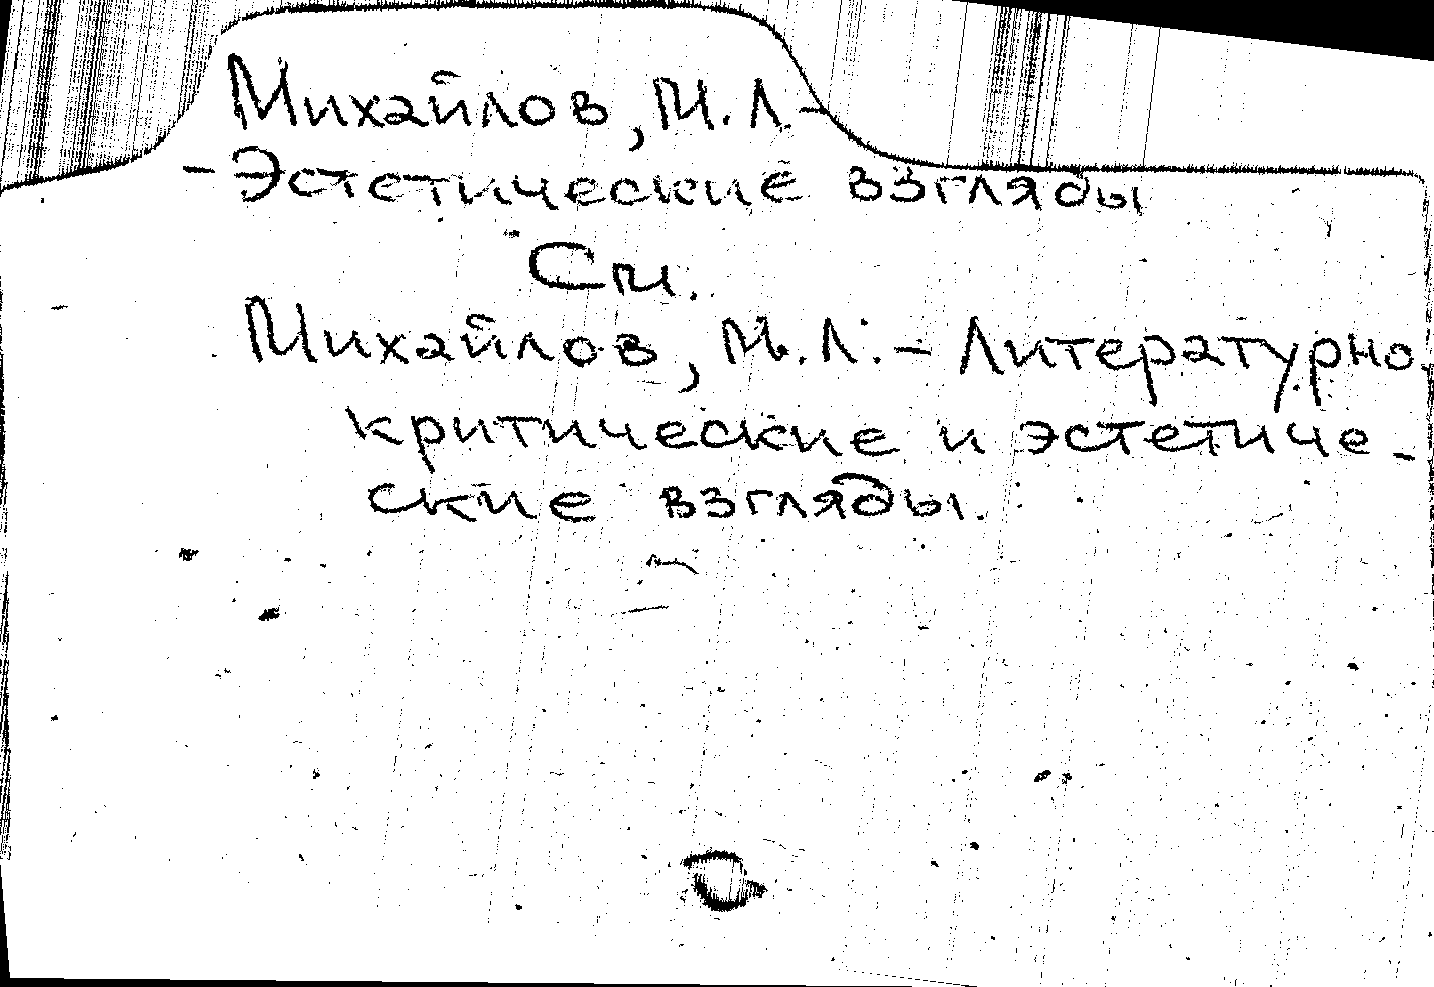 Михайлов, М.Л.-
- Эстетические взгляды
См.
Михайлов, М.Л.- Литературно-
критические и эстетиче-
ские взгляды.